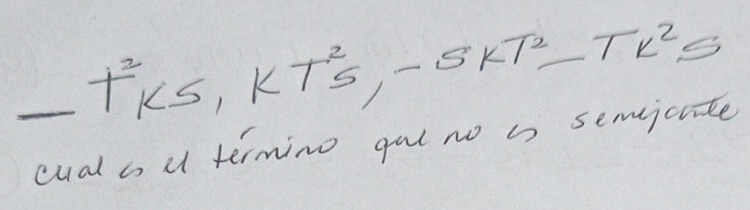 − T²KS, KT²S, − SKT² − TK²S
cual es el término que no es semejante